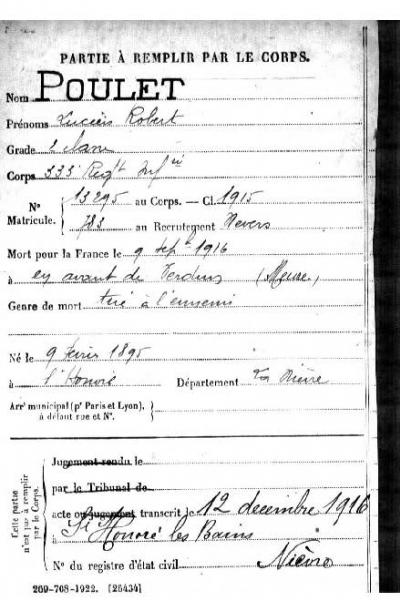 PARTIE À REMPLIR PAR LE CORPS.
Nom POULET
Prénoms Lucien Robert
Grade 2 classe
Corps 333e Regt Infrie
No 13295 au Corps. — Cl. 1915
Matricule. 783 au Recrutement Nevers
Mort pour la France le 9 Sept 1916
à en avant de Verdun (Meuse)
Genre de mort tué à l'ennemi
Né le 9 février 1895
à St Honoré Département La Nièvre
Arrt municipal (pr Paris et Lyon),
à défaut rue et No.
Cette partie n'est pas à remplir par le Corps.
Jugement rendu le
par le Tribunal de
acte ou jugement transcrit le 12 décembre 1916
St Honoré les Bains
No du registre d'état civil Nièvre
269-708-1922. [26434]